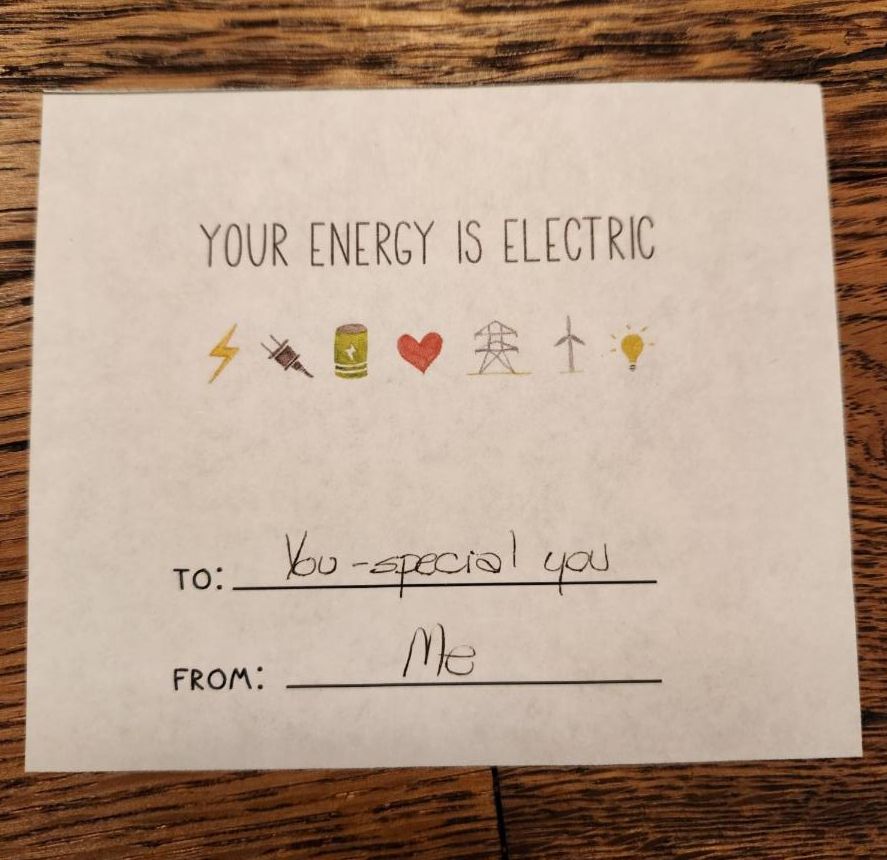 YOUR ENERGY IS ELECTRIC
TO: You-special you
FROM: Me